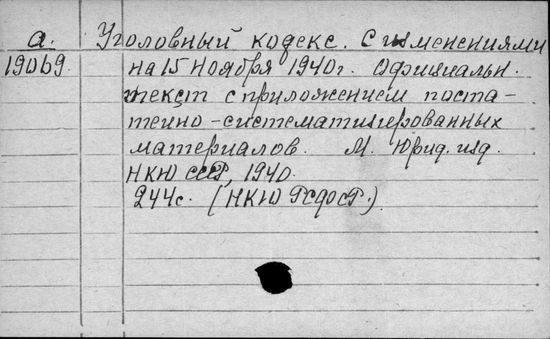 а. Уголовный кодекс. С изменениями
19069. на 15 ноября 1940г. Официальн.
текст с приложением поста-
тейно-систематизированных
материалов. М. Юрид. изд.
НКЮ СССР, 1940.
244с. (НКЮ РСФСР.)